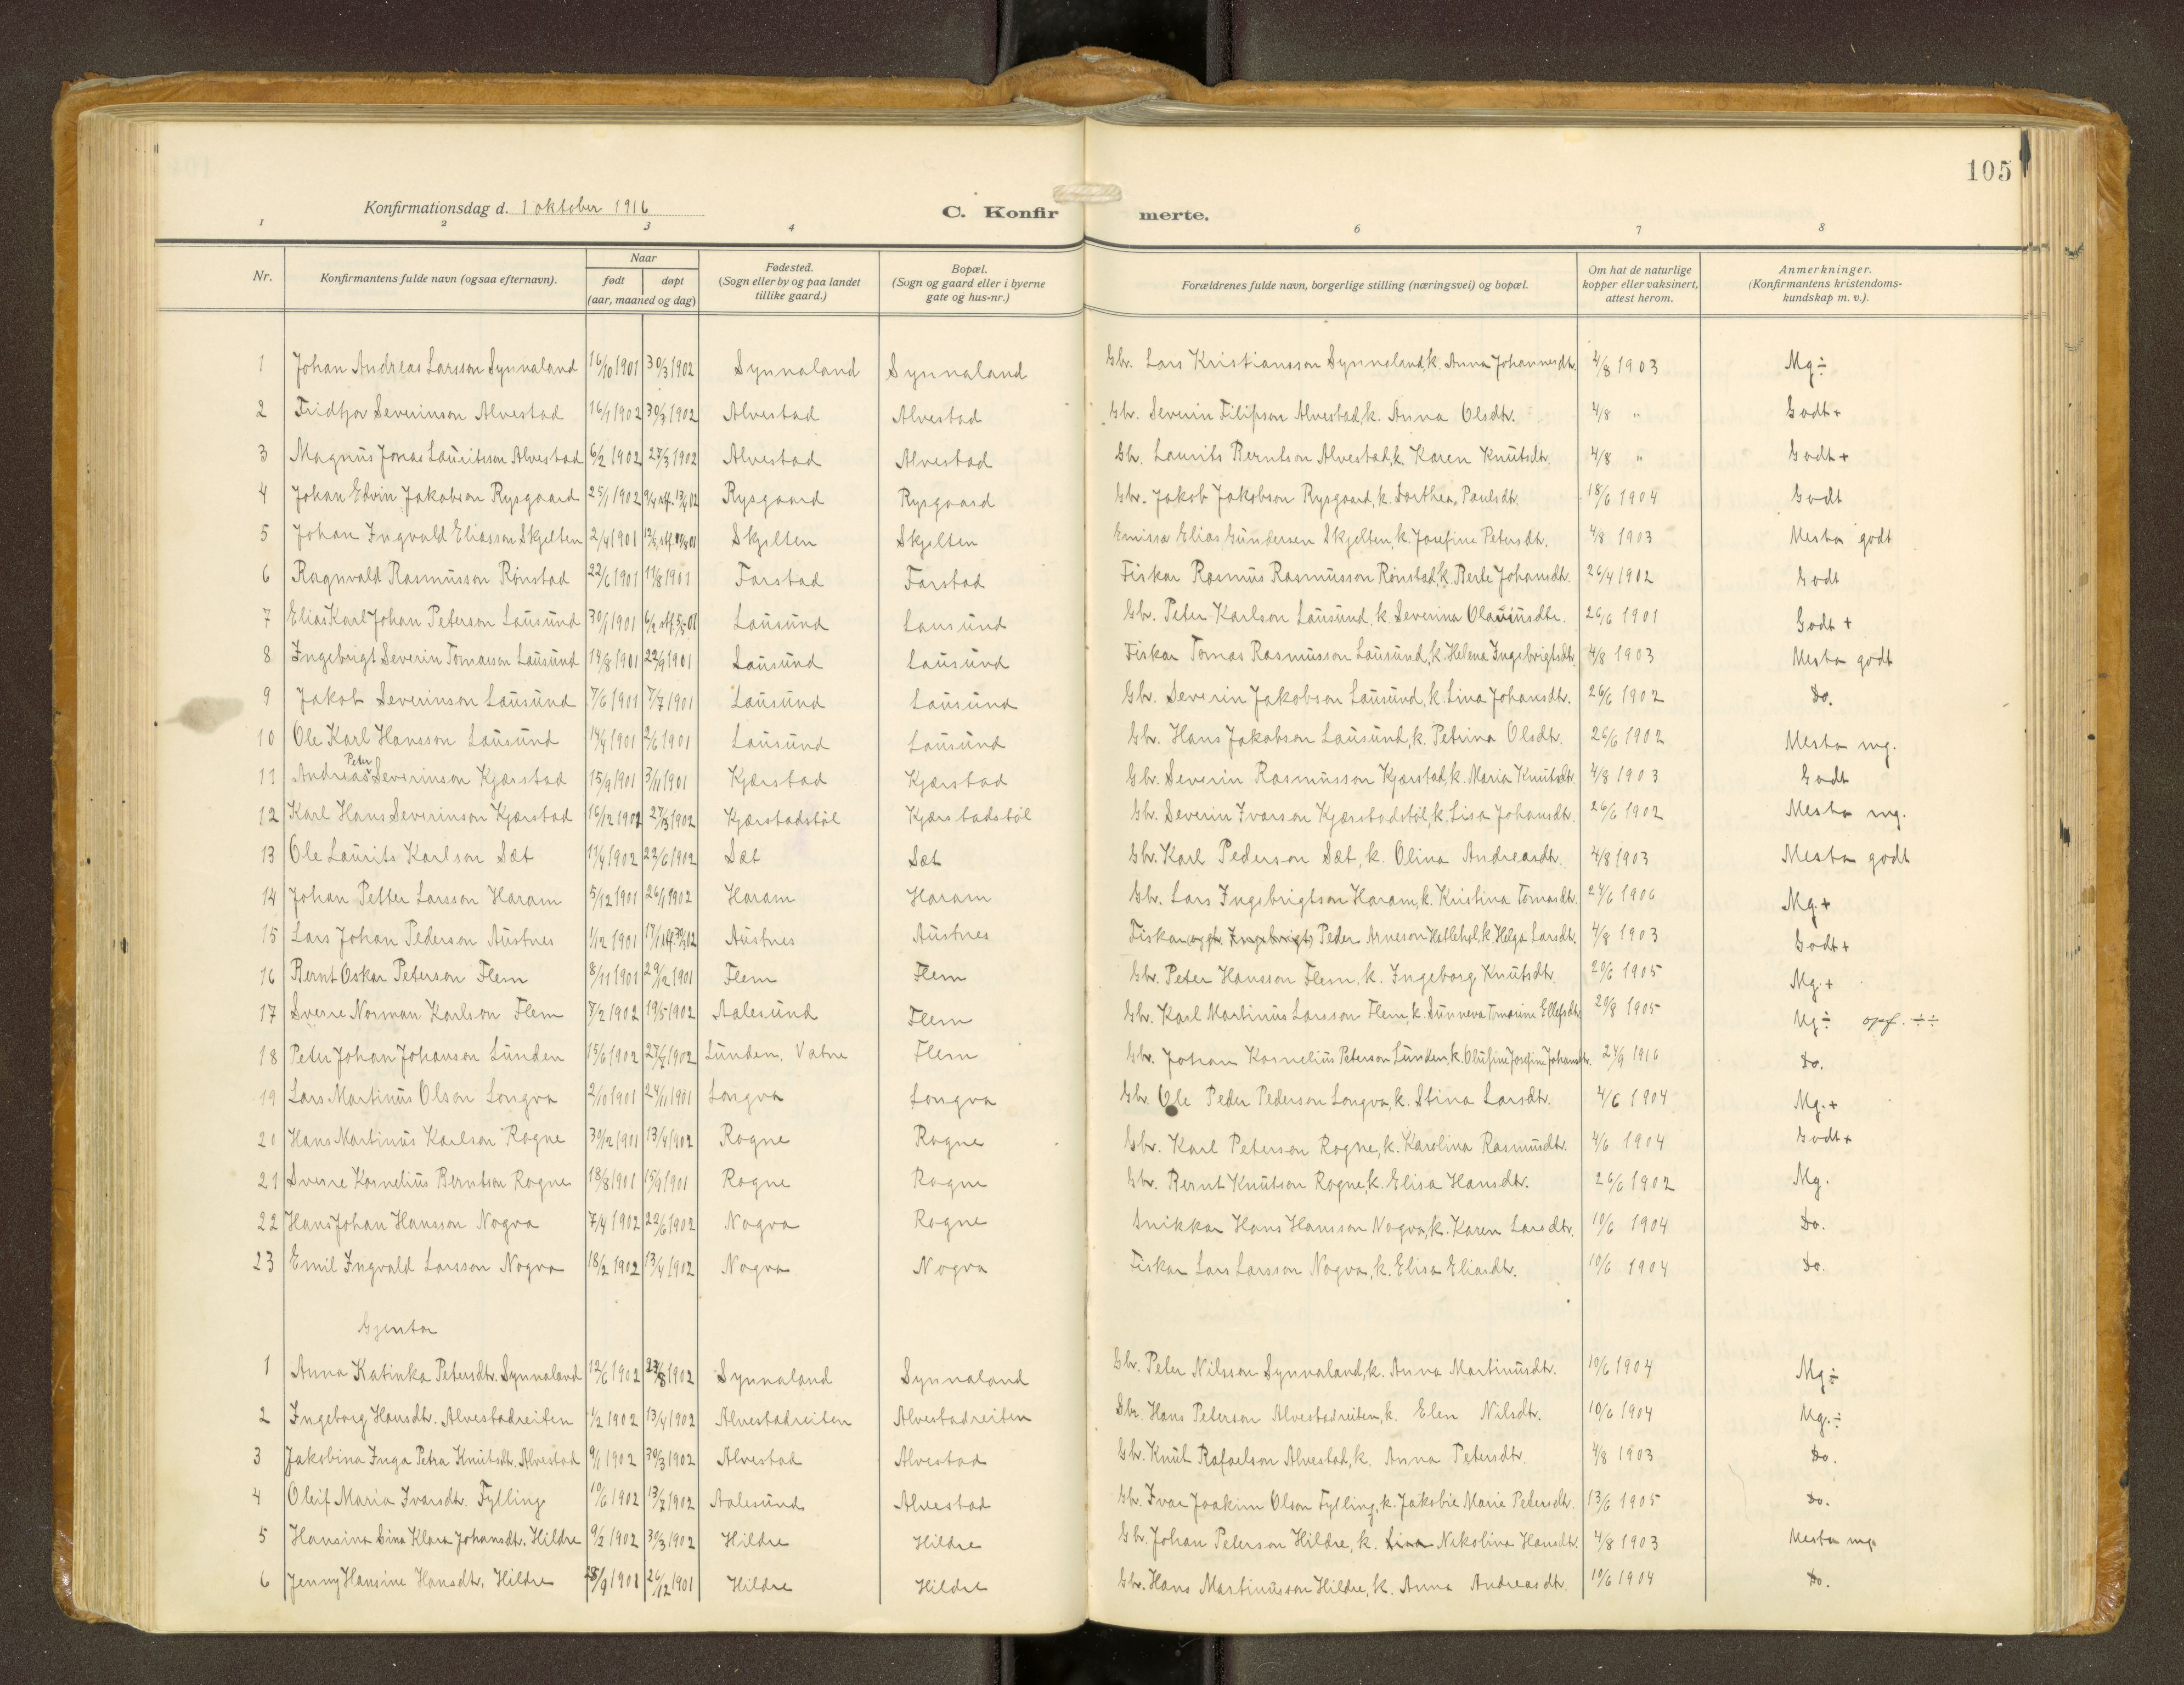 105
Konfirmationsdag d. 1 oktober 1916
C. Konfirmerte.
1 2 3 4 6 7 8
Nr. | Konfirmantens fulde navn (ogsaa efternavn). | Naar født døpt (aar, maaned og dag) | Fødested. (Sogn eller by og paa landet tillike gaard.) | Bopæl. (Sogn og gaard eller i byerne gate og hus-nr.) | Forældrenes fulde navn, borgerlige stilling (næringsvei) og bopæl. | Om hat de naturlige kopper eller vaksinert, attest herom. | Anmerkninger. (Konfirmantens kristendoms-kundskap m. v.).
1 Johan Andreas Larsson Synnaland 16/10 1901 30/3 1902 Synnaland Synnaland Gbr. Lars Kristiansson Synnaland, k. Anna Johannesdtr. 4/8 1903 Mg ÷
2 Fridtjov Severinson Alvestad 16/1 1902 30/3 1902 Alvestad Alvestad Gbr. Severin Filipson Alvestad, k. Anna Olsdtr. 4/8 " Godt +
3 Magnus Jonas Lauritsson Alvestad 6/2 1902 27/3 1902 Alvestad Alvestad Gbr. Laurits Berntson Alvestad, k. Karen Knutsdtr. 4/8 " Godt +
4 Johan Edvin Jakobson Rysgaard 25/1 1902 9/4 stf. 13/4 02 Rysgaard Rysgaard Gbr. Jakob Jakobson Rysgaard, k. Dorthea Paulsdtr. 18/6 1904 Godt
5 Johan Ingvald Eliasson Skjelten 2/4 1901 Skjelten Skjelten Emissær Elias Gundersen Skjelten, k. Josefine Petersdtr. 4/8 1903 Mesta godt
6 Ragnvald Rasmusson Rønstad 22/6 1901 11/8 1901 Farstad Farstad Fiskar Rasmus Rasmusson Rønstad, k. Berte Johansdtr. 26/4 1902 Godt
7 Elias Karl Johan Peterson Lausund 30/1 1901 6/2 stf. 5/5-01 Lausund Lausund Gbr. Peter Karlson Lausund, k. Severina Olausdtr. 26/6 1901 Godt +
8 Ingebrigt Severin Tomasson Lausund 14/8 1901 22/9 1901 Lausund Lausund Fiskar Tomas Rasmusson Lausund, k. Helena Ingebrigtsdtr. 4/8 1903 Mesta godt
9 Jakob Severinson Lausund 7/6 1901 7/7 1901 Lausund Lausund Gbr. Severin Jakobson Lausund, k. Lina Johansdtr. 26/6 1902 Do.
10 Ole Karl Hansson Lausund 14/4 1901 2/6 1901 Lausund Lausund Gbr. Hans Jakobson Lausund, k. Petrina Olsdtr. 26/6 1902 Mesta mg.
11 Andreas Peter Severinson Kjærstad 15/9 1901 3/11 1901 Kjærstad Kjærstad Gbr. Severin Rasmusson Kjærstad, k. Maria Knutsdtr. 4/8 1903 Godt
12 Karl Hans Severinson Kjærstad 16/12 1901 27/3 1902 Kjærstadstøl Kjærstadstøl Gbr. Severin Ivarson Kjærstadstøl, k. Lisa Johansdtr. 26/6 1902 Mesta mg.
13 Ole Laurits Karlson Sæt 11/4 1902 22/6 1902 Sæt Sæt Gbr. Karl Pederson Sæt, k. Olina Andreasdtr. 4/8 1903 Mesta godt
14 Johan Petter Larsson Haram 5/12 1901 26/1 1902 Haram Haram Gbr. Lars Ingebrigtson Haram, k. Kristina Tomasdtr. 24/6 1906 Mg. +
15 Lars Johan Pederson Austnes 1/12 1901 Austnes Austnes Fiskar Peder Arneson Hatlehol, k. Helga Larsdtr. 4/8 1903 Godt +
16 Bernt Oskar Peterson Flem 8/11 1901 29/12 1901 Flem Flem Gbr. Peter Hansson Flem, k. Ingeborg Knutsdtr. 29/6 1905 Mg. +
17 Sverre Norman Karlson Flem 7/2 1902 19/5 1902 Aalesund Flem Gbr. Karl Martinus Larsson Flem, k. Sunneva Tomasine Ellefsdtr. 29/8 1905 Mg ÷ opf. ÷÷
18 Peter Johan Johanson Lunden 15/6 1902 27/7 1902 Lunden, Vatne Flem Gbr. Johan Kornelius Peterson Lunden, k. Olufine Josefine Johansdtr. 24/9 1916 Do.
19 Lars Martinus Olson Longva 2/10 1901 24/11 1901 Longva Longva Gbr. Ole Peder Pederson Longva, k. Stina Larsdtr. 4/6 1904 Mg. +
20 Hans Martinus Karlson Rogne 30/12 1901 13/4 1902 Rogne Rogne Gbr. Karl Peterson Rogne, k. Karolina Rasmusdtr. 4/6 1904 Godt +
21 Sverre Kornelius Berntson Rogne 18/8 1901 15/9 1901 Rogne Rogne Gbr. Bernt Knutson Rogne, k. Elisa Hansdtr. 26/6 1902 Mg.
22 Hans Johan Hansson Nogva 7/4 1902 22/6 1902 Nogva Rogne Snikkar Hans Hansson Nogva, k. Karen Larsdtr. 10/6 1904 Do.
23 Emil Ingvald Larsson Nogva 18/2 1902 13/4 1902 Nogva Nogva Fiskar Lars Larsson Nogva, k. Elisa Eliasdtr. 10/6 1904 Do.
Gjentor
1 Anna Katinka Petersdtr. Synnaland 12/6 1902 /8 1902 Synnaland Synnaland Gbr. Peter Nilsson Synnaland, k. Anna Martinusdtr. 10/6 1904 Mg ÷
2 Ingeborg Hansdtr. Alvestadreiten 1/2 1902 13/4 1902 Alvestadreiten Alvestadreiten Gbr. Hans Peterson Alvestadreiten, k. Elen Nilsdtr. 10/6 1904 Mg. ÷
3 Jakobina Inga Petra Knutsdtr. Alvestad 9/1 1902 30/3 1902 Alvestad Alvestad Gbr. Knut Rafaelson Alvestad, k. Anna Petersdtr. 4/8 1903 Do.
4 Oleif Maria Ivarsdtr. Fylling 10/6 1902 13/7 1902 Aalesund Alvestad Gbr. Ivar Joakim Olson Fylling, k. Jakobie Marie Petersdtr. 13/6 1905 Do.
5 Hansina Sina Klara Johansdtr. Hildre 9/2 1902 30/3 1902 Hildre Hildre Gbr. Johan Peterson Hildre, k. Lina Nikolina Hansdtr. 4/8 1903 Mesta mg.
6 Jenny Hansine Hansdtr. Hildre 28/9 1901 26/12 1901 Hildre Hildre Gbr. Hans Martinusson Hildre, k. Anna Andreasdtr. 10/6 1904 Do.